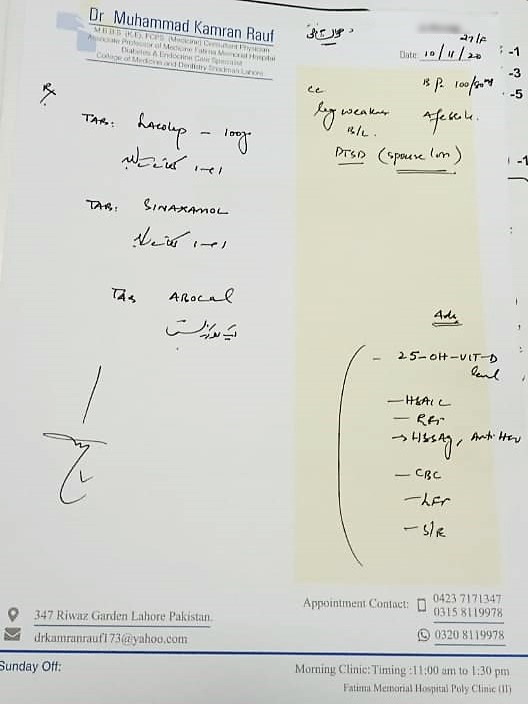 Dr Muhammad Kamran Rauf
M.B.B.S. (K.E), FCPS. (Medicine) Consultant Physician
Associate Professor of Medicine Fatima Memorial Hospital
Diabetes & Endocrine Care Specialist
College of Medicine and Dentistry Shadman Lahore
27/F
Date: 10/11/20
B.P. 100/80
℞
TAB: Lacolep - 100
1-1-1
TAB: SINAXAMOL
1-1-1
TAB ABOCAL
cc
leg weakness
B/L.
Afebrile.
PTSD (spouse loss)
Adv
- 25-OH-VIT-D
level
- HBA1C
- RFT
→ HBSAg, Anti HCV
- CBC
- LFT
- S/E
347 Riwaz Garden Lahore Pakistan.
drkamranrauf173@yahoo.com
Appointment Contact:
0423 7171347
0315 8119978
0320 8119978
Sunday Off:
Morning Clinic:Timing :11:00 am to 1:30 pm
Fatima Memorial Hospital Poly Clinic (II)
-1
-3
-5
-1